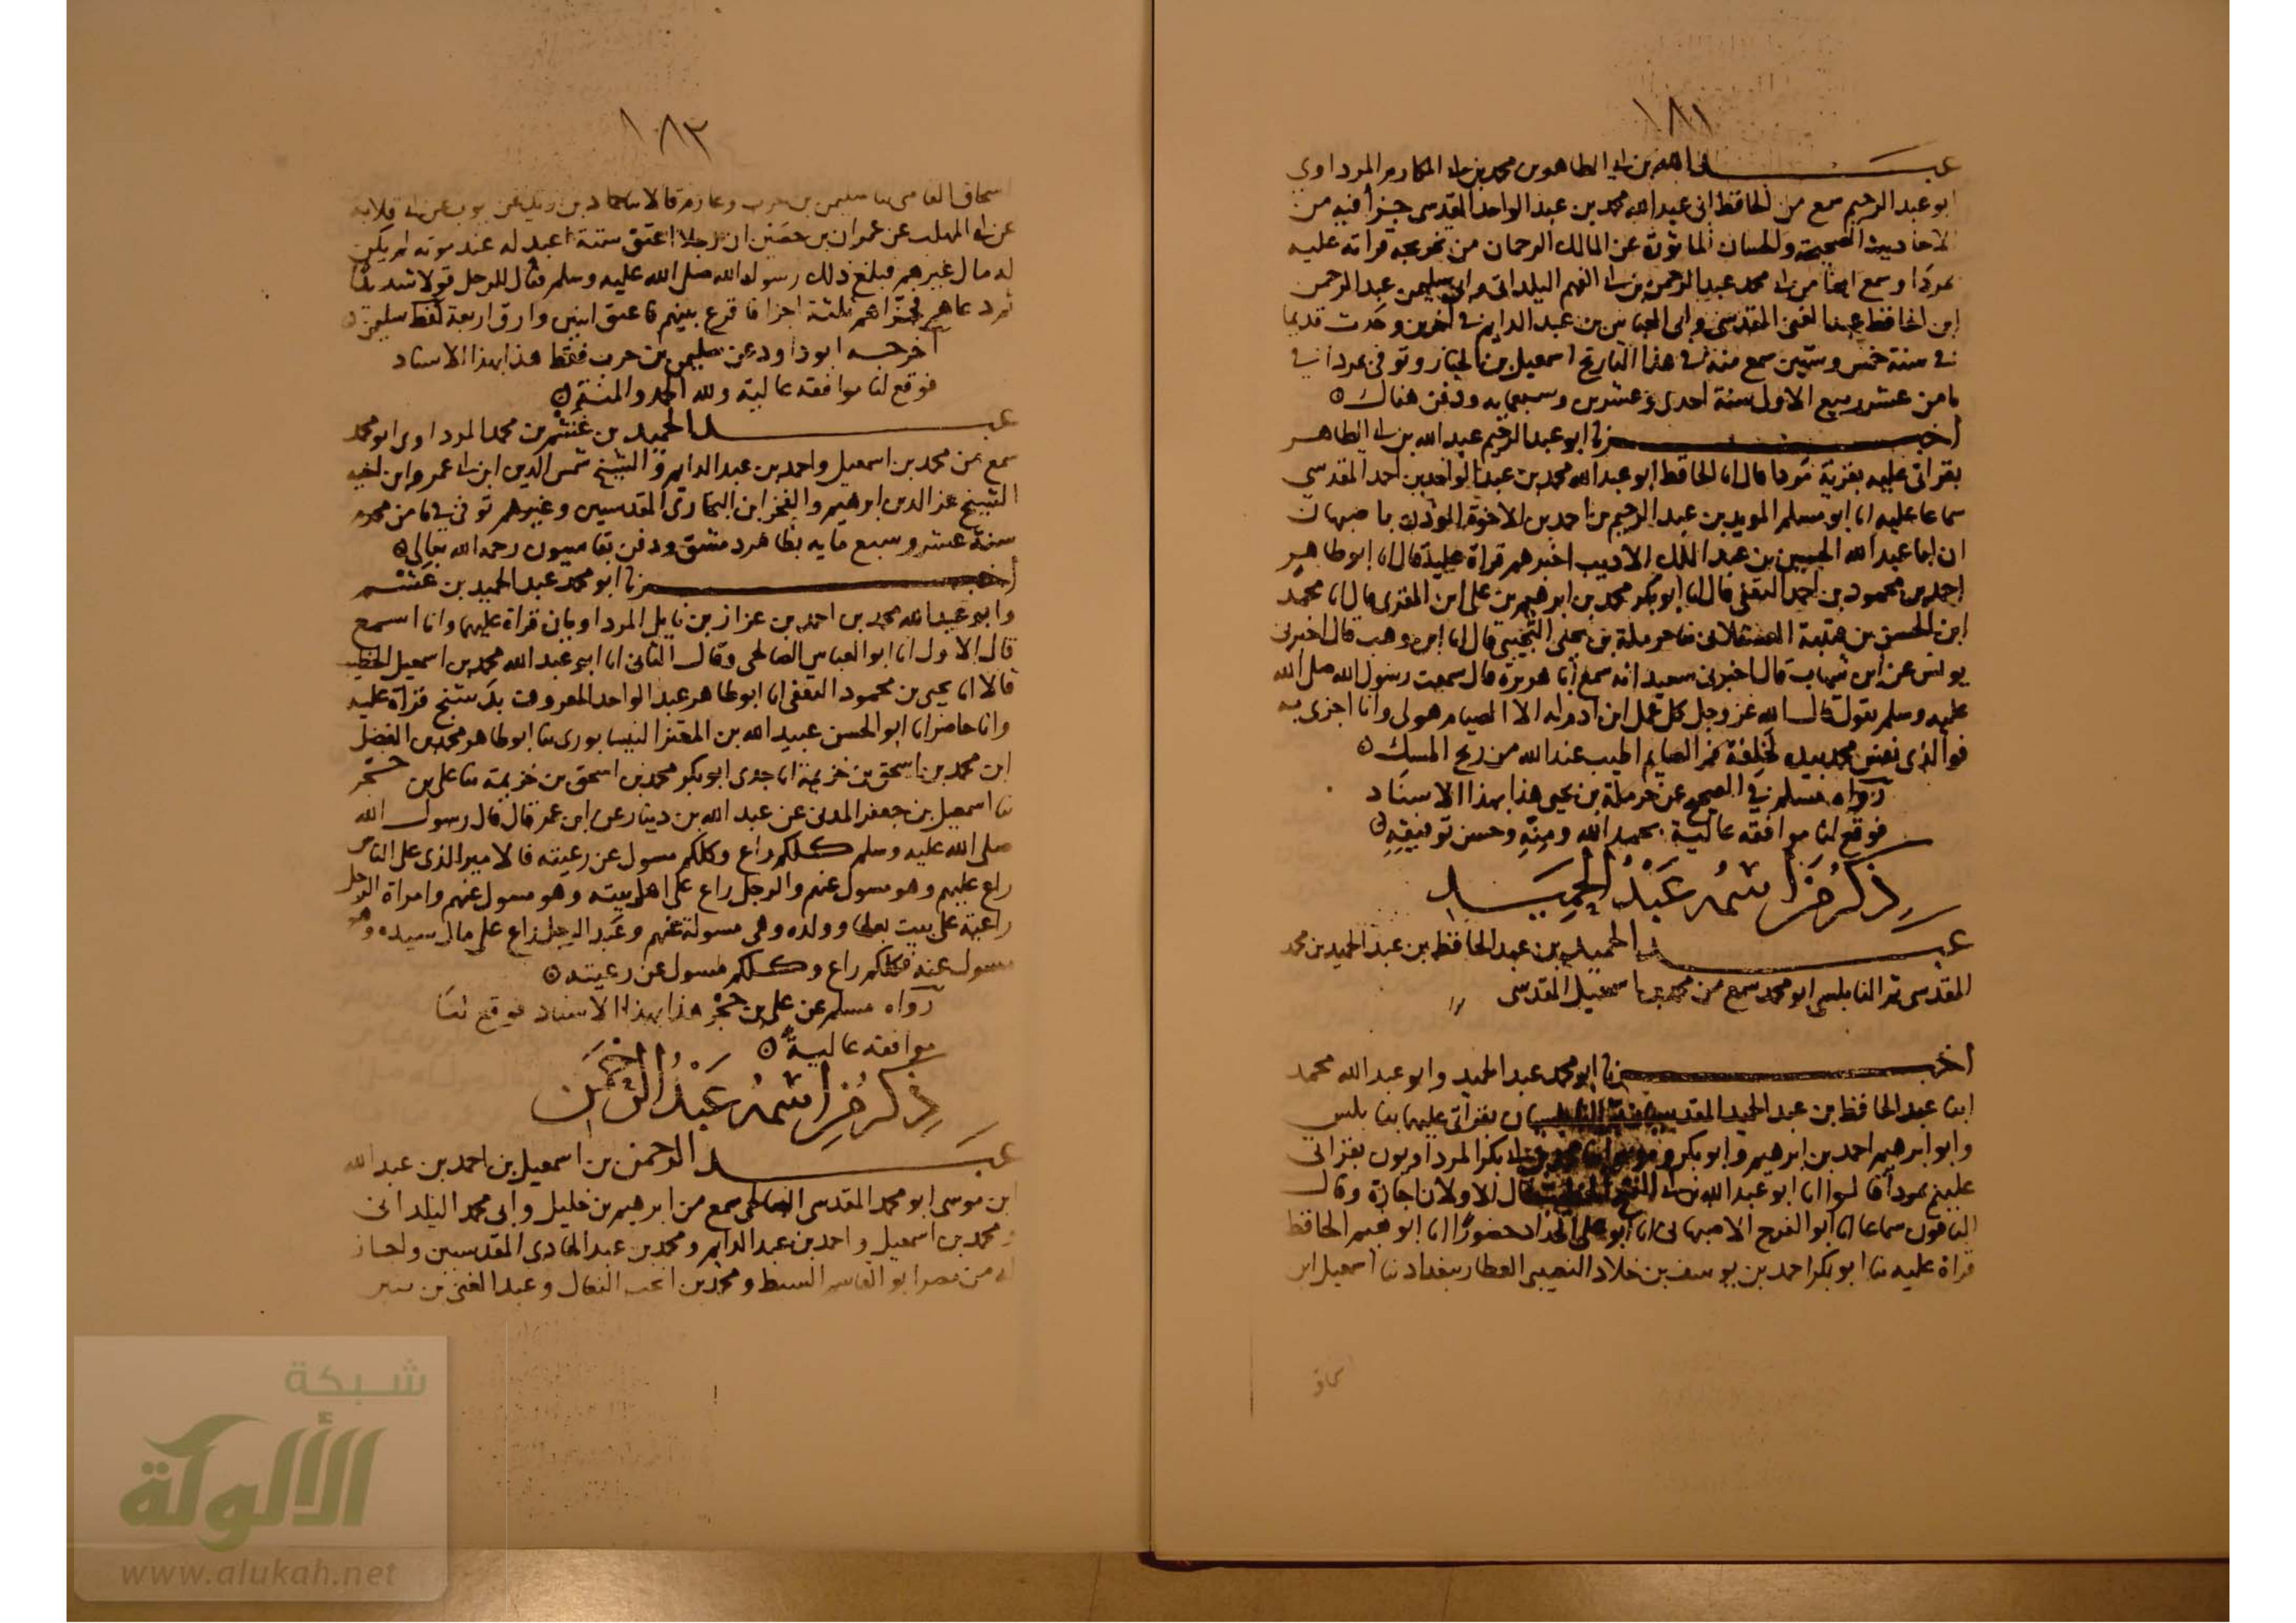 ١٨١
عبد الله بن ابي الطاهر بن محمد بن ابي المكارم المرداوي
ابو عبد الرحيم سمع من الحافظ ابي عبد الله محمد بن عبد الواحد المقدسي جزأ فيه من
الاحاديث الصحيحة والحسان الماثورة عن المالك الرحمان من تخريجه قراته عليه
بمردا وسمع ايضا من ابي محمد عبد الرحمن بن ابي الفهم اليلداني وابي سليمن عبد الرحمن
ابن الحافظ عبد الغني المقدسي وابي العباس بن عبد الدايم في اخرين وحدث قديما
في سنة خمس وستين سمع منه في هذا التاريخ اسمعيل بن الخباز وتوفي بمردا في
ثامن عشر ربيع الاول سنة احدى وعشرين وسبعمايه ودفن هناك ه
اخبرنا ابو عبد الرحيم عبد الله بن ابي الطاهر
بقراتي عليه بقرية مردا قال انا الحافظ ابو عبد الله محمد بن عبد الواحد بن احمد المقدسي
سماعا عليه انا ابو مسلم المويد بن عبد الرحيم بن احمد بن الاخوة المؤذن باصبهان
ان ابا عبد الله الحسين بن عبد الملك الاديب اخبرهم قراة عليه قال انا ابو طاهر
احمد بن محمود بن احمد الثقفي قال انا ابو بكر محمد بن ابرهيم بن علي ابن المقري قال انا محمد
ابن الحسن بن قتيبة العسقلاني ثنا حرملة بن يحيى التجيبي قال انا ابن وهب قال اخبرني
يونس عن ابن شهاب قال اخبرني سعيد انه سمع أبا هريرة قال سمعت رسول الله صلى الله
عليه وسلم يقول قال الله عز وجل كل عمل ابن ادم له الا الصيام هو لي وانا اجزي به
فوالذي نفس محمد بيده لخلفة فم الصايم اطيب عند الله من ريح المسك ه
رواه مسلم في الصحيح عن حرملة بن يحيى هذا بهذا الاسناد
فوقع لنا موافقه عالية بحمد الله ومنه وحسن توفيقه ه
ذكر من اسمه عبد الحميد
عبد الحميد بن عبد الحافظ بن عبد الحميد بن محمد
المقدسي ثم النابلسي ابو محمد سمع من محمد بن اسمعيل المقدسي
اخبرنا ابو محمد عبد الحميد وابو عبد الله محمد
ابنا عبد الحافظ بن عبد الحميد المقدسيان بقراتي عليهما بنابلس
وابو ابرهيم احمد بن ابرهيم وابو بكر بكر المرداويون بقراتي
عليهم بمردا قالوا انا ابو عبد الله بن ابي قال الاولان اجازة وقال
الباقون سماعا انا ابو الفرج الاصبهاني انا ابو علي الحداد حضورا انا ابو نعيم الحافظ
قراة عليه ثنا ابو بكر احمد بن يوسف بن خلاد النصيبي العطار ببغداد ثنا اسمعيل ابن
١٨٢
اسحاق القاضي ثنا سليمن بن حرب وعارم قالا ثنا حماد بن زيد عن ايوب عن ابي قلابه
عن ابي المهلب عن عمران بن حصين ان رجلا اعتق ستة اعبد له عند موته لم يكن
له مال غيرهم فبلغ ذلك رسول الله صلى الله عليه وسلم فقال للرجل قولا شديدا
ثم دعاهم فجزاهم ثلثة اجزا فاقرع بينهم فاعتق اثنين وارق اربعة لفظ سليمن ه
اخرجه ابو داود عن سليمن بن حرب فقط هذا بهذا الاسناد
فوقع لنا موافقه عالية ولله الحمد والمنة ه
عبد الحميد بن غشم بن محمد المرداوي ابو محمد
سمع من محمد بن اسمعيل واحمد بن عبد الدايم والشيخ شمس الدين ابن ابي عمر وابن اخيه
الشيخ عز الدين ابرهيم والفخر ابن البخاري المقدسيين وغيرهم توفي في ثامن محرم
سنة عشر وسبع مايه بظاهر دمشق ودفن بقاسيون رحمه الله تعالى ه
اخبرنا ابو محمد عبد الحميد بن غشم
وابو عبد الله محمد بن احمد بن عزاز بن نايل المرداويان قراة عليهما وانا اسمع
قال الاول انا ابو العباس الصالحي وقال الثاني انا ابو عبد الله محمد بن اسمعيل الخطيب
قالا انا يحيى بن محمود الثقفي انا ابو طاهر عبد الواحد المعروف بدشتج قراة عليه
وانا حاضر انا ابو الحسن عبيد الله بن المعتز النيسابوري ثنا ابو طاهر محمد بن الفضل
ابن محمد بن اسحق بن خزيمة انا جدي ابو بكر محمد بن اسحق بن خزيمة ثنا علي بن حجر
ثنا اسمعيل بن جعفر المدني عن عبد الله بن دينار عن ابن عمر قال قال رسول الله
صلى الله عليه وسلم كلكم راع وكلكم مسول عن رعيته فالامير الذي على الناس
راع عليهم وهو مسول عنهم والرجل راع على اهل بيته وهو مسول عنهم وامراة الرجل
راعية على بيت بعلها وولده وهي مسولة عنهم وعبد الرجل راع على مال سيده وهو
مسول عنه فكلكم راع وكلكم مسول عن رعيته ه
رواه مسلم عن علي بن حجر هذا بهذا الاسناد فوقع لنا
موافقه عالية ه
ذكر من اسمه عبد الرحمن
عبد الرحمن بن اسمعيل بن احمد بن عبد الله
ابن موسى ابو محمد المقدسي الصالحي سمع من ابرهيم بن خليل وابي محمد اليلداني
ومحمد بن اسمعيل واحمد بن عبد الدايم ومحمد بن عبد الهادي المقدسيين واجاز
له من مصر ابو القاسم السبط ومحمد بن انجب النعال وعبد الغني بن بنين
شبكة
الألوكة
www.alukah.net